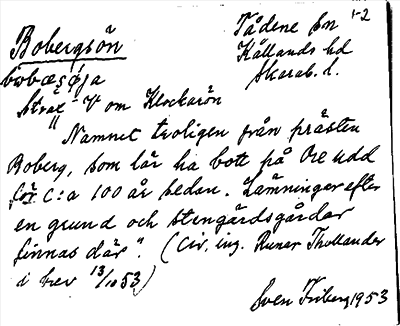 Bobergsön
Tådene sn 1-2
Kållands hd
Skarab. l.
strax V om Klockarön
"Namnet troligen från prästen
Boberg, som lär ha bott på Ore udd
för c:a 100 år sedan. Lämningar efter
en grund och stengärdsgårdar
finnas där". (Civ. ing. Runer Thollander
i brev 13/10 53)
Sven Friberg 1953